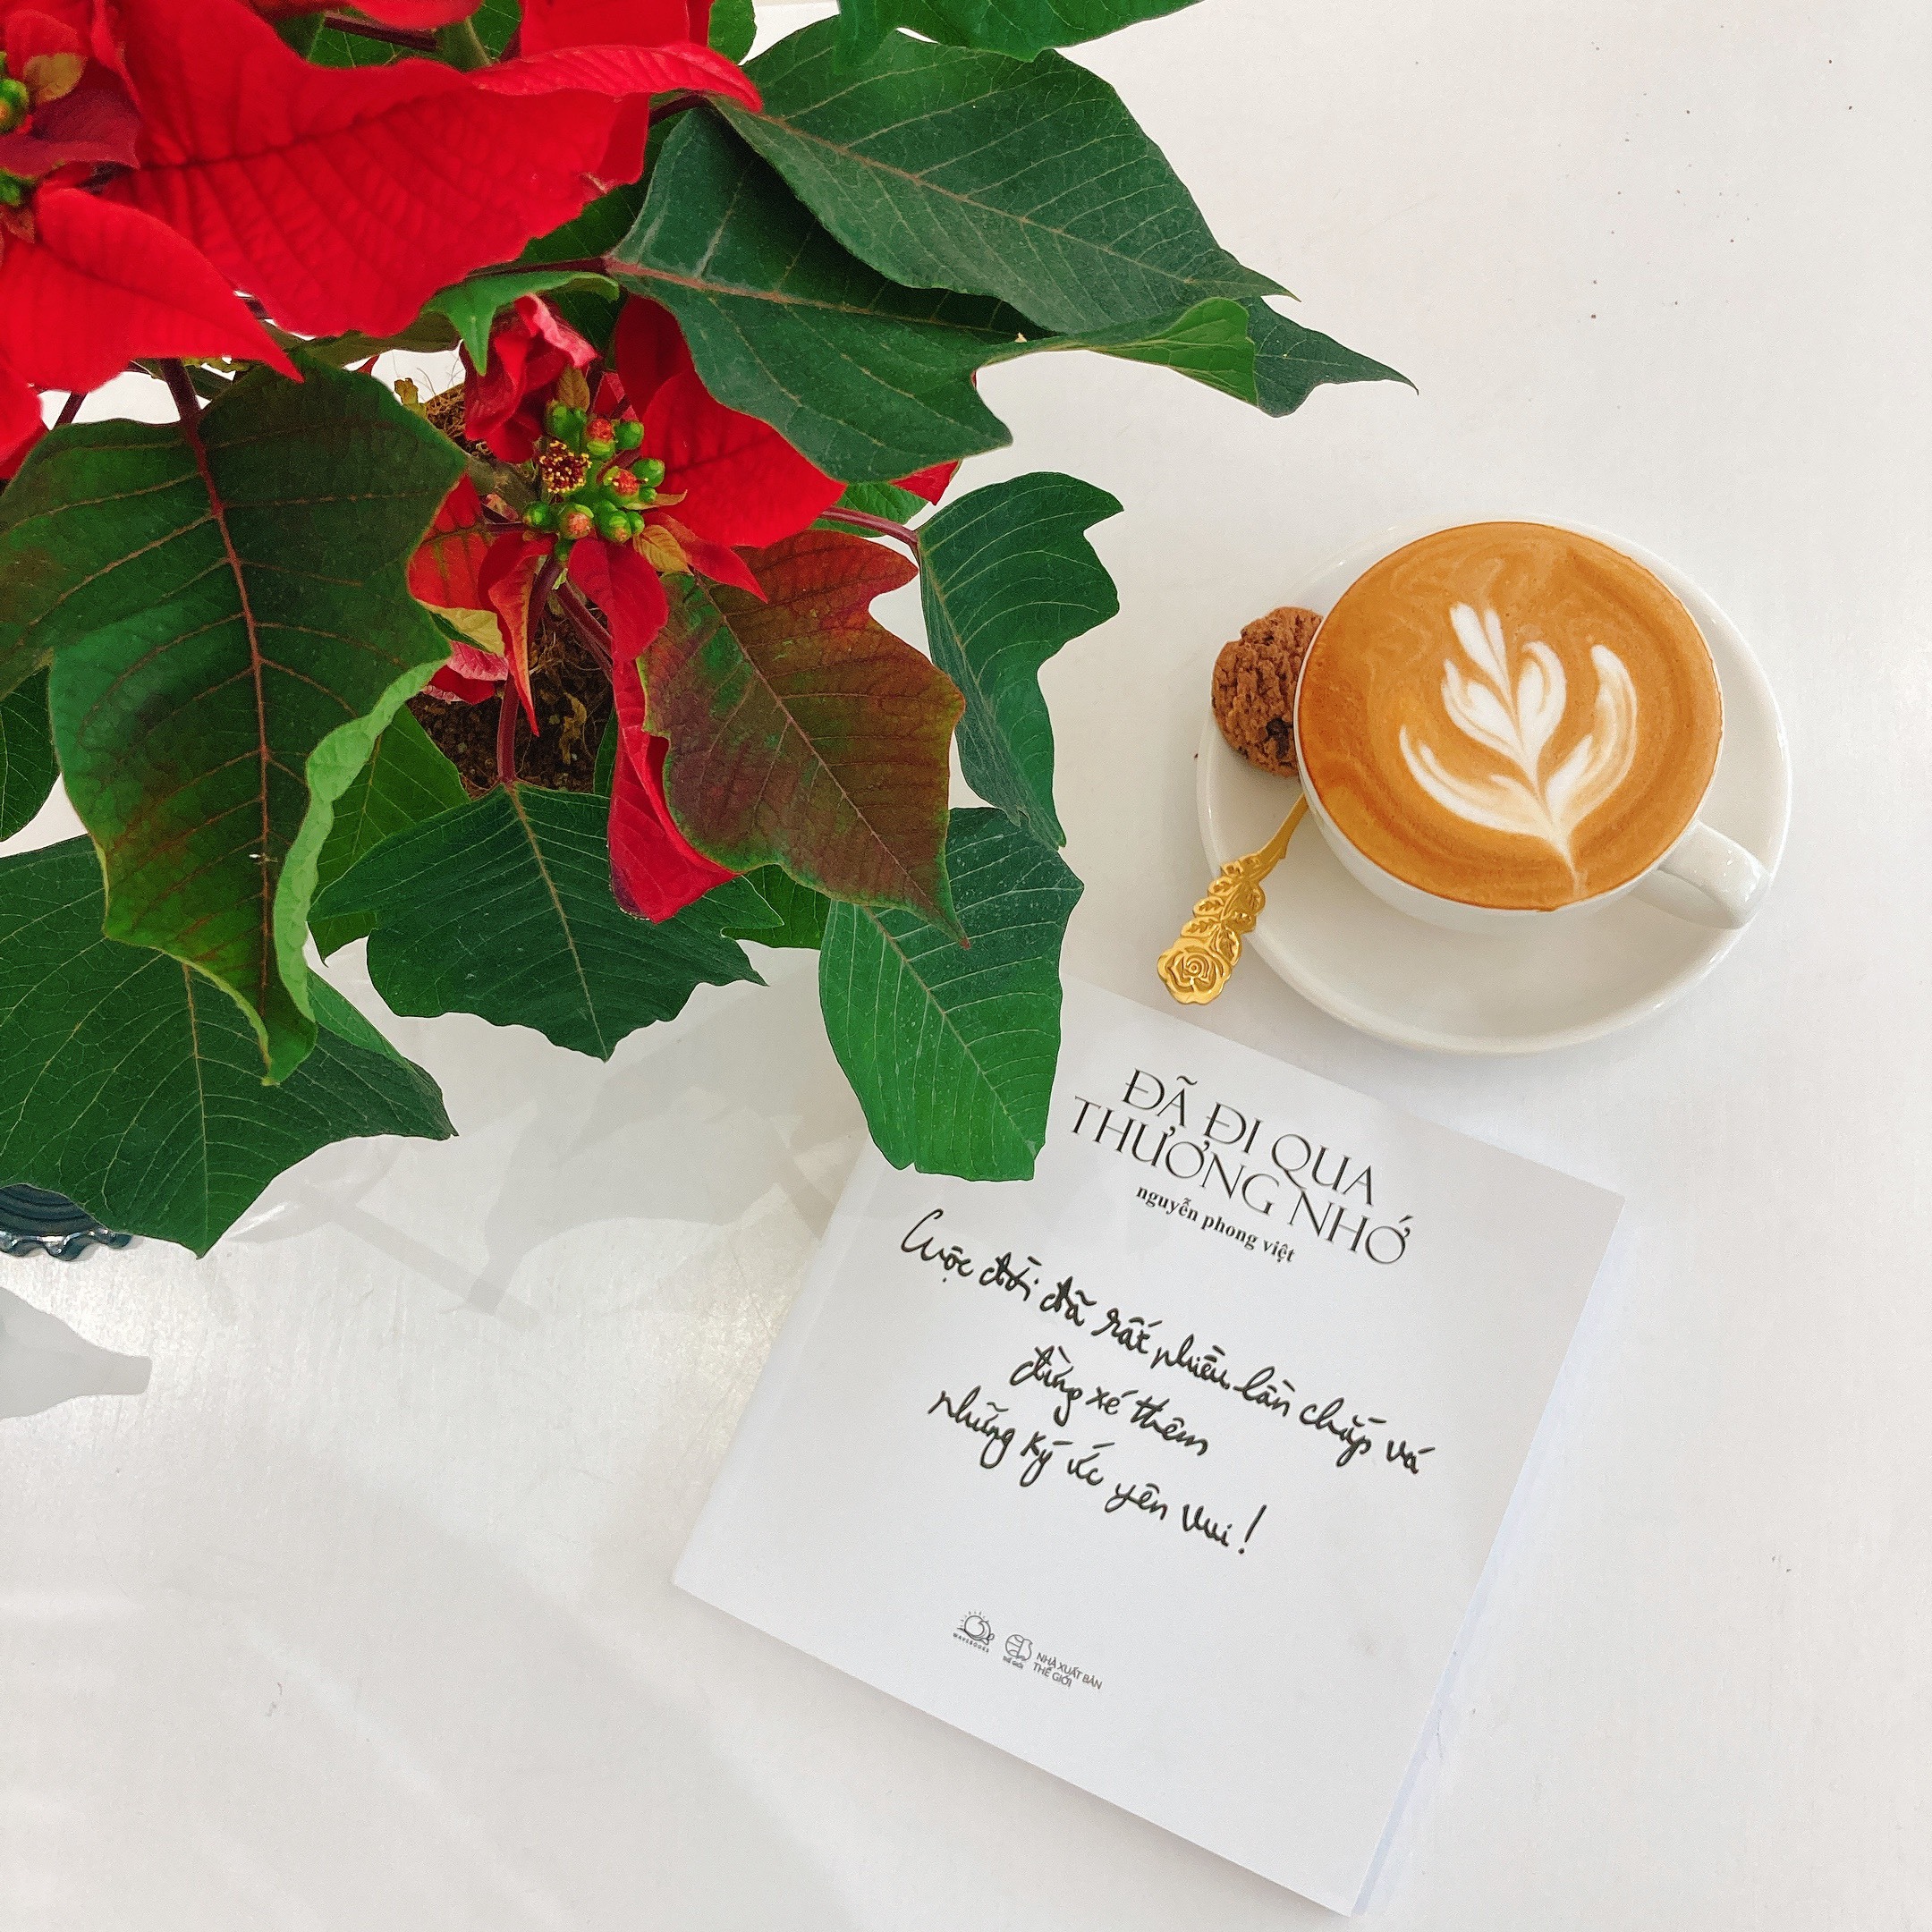 ĐÃ ĐI QUA
THƯƠNG NHỚ
nguyễn phong việt
Cuộc đời đã rất nhiều lần chắp vá
đừng xé thêm
những ký ức yên vui!
WAVEBOOKS
THẾ GIỚI
NHÀ XUẤT BẢN
THẾ GIỚI